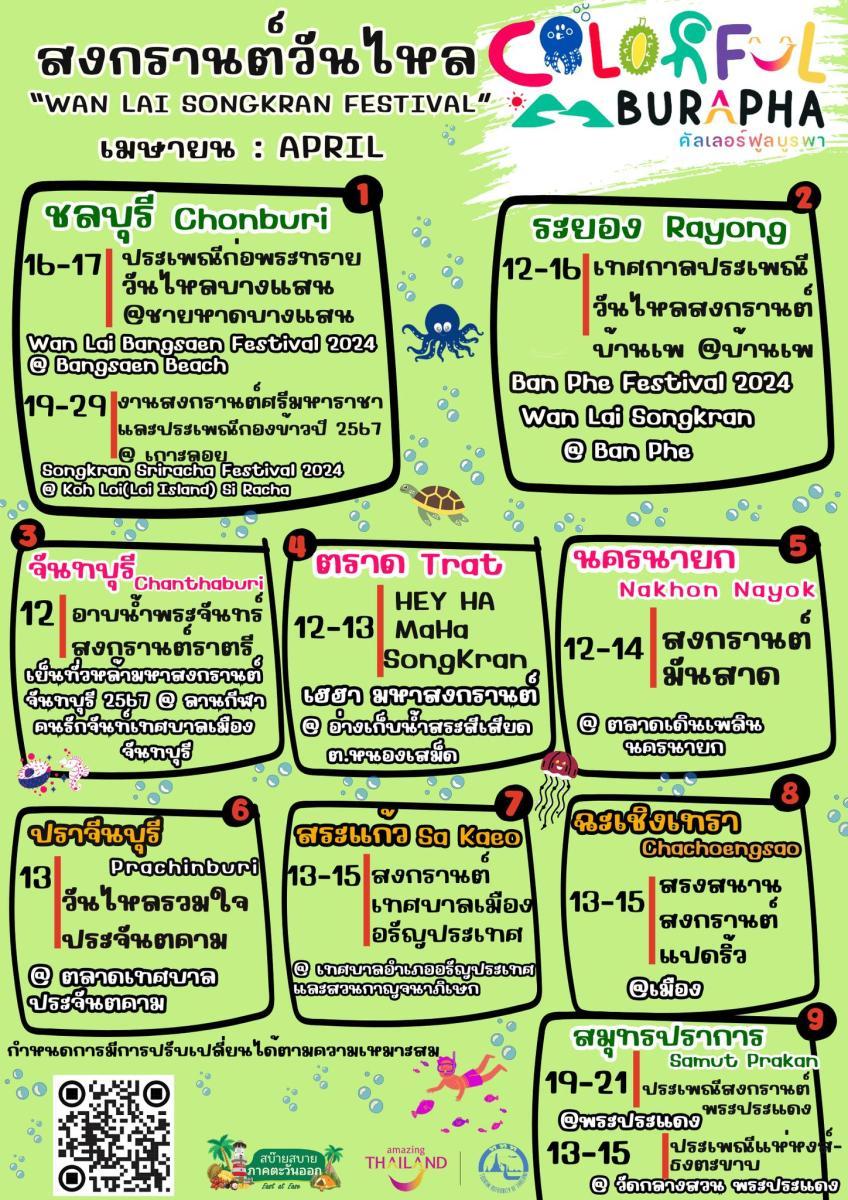 สงกรานต์วันไหล
"WAN LAI SONGKRAN FESTIVAL"
เมษายน : APRIL
COLORFUL
BURAPHA
คัลเลอร์ฟูลบูรพา
1
ชลบุรี Chonburi
16-17 ประเพณีก่อพระทราย
วันไหลบางแสน
@ชายหาดบางแสน
Wan Lai Bangsaen Festival 2024
@ Bangsaen Beach
19-29 งานสงกรานต์ศรีมหาราชา
และประเพณีกองข้าวปี 2567
@ เกาะลอย
Songkran Sriracha Festival 2024
@ Koh Loi(Loi Island) Si Racha
2
ระยอง Rayong
12-16 เทศกาลประเพณี
วันไหลสงกรานต์
บ้านเพ @บ้านเพ
Ban Phe Festival 2024
Wan Lai Songkran
@ Ban Phe
3
จันทบุรี Chanthaburi
12 อาบน้ำพระจันทร์
สงกรานต์ราตรี
เย็นทั่วหล้ามหาสงกรานต์
จันทบุรี 2567 @ ลานกีฬา
คนรักจันท์เทศบาลเมือง
จันทบุรี
4
ตราด Trat
12-13 HEY HA
MaHa
SongKran
เฮฮา มหาสงกรานต์
@ อ่างเก็บน้ำสระสีเสียด
ต.หนองเสม็ด
5
นครนายก
Nakhon Nayok
12-14 สงกรานต์
มันสาด
@ ตลาดเดินเพลิน
นครนายก
6
ปราจีนบุรี
Prachinburi
13 วันไหลรวมใจ
ประจันตคาม
@ ตลาดเทศบาล
ประจันตคาม
7
สระแก้ว Sa Kaeo
13-15 สงกรานต์
เทศบาลเมือง
อรัญประเทศ
@ เทศบาลอำเภออรัญประเทศ
และสวนกาญจนาภิเษก
8
ฉะเชิงเทรา
Chachoengsao
13-15 สรงสนาน
สงกรานต์
แปดริ้ว
@เมือง
9
สมุทรปราการ
Samut Prakan
19-21 ประเพณีสงกรานต์
พระประแดง
@พระประแดง
13-15 ประเพณีแห่หงส์-
ธงตะขาบ
@ วัดกลางสวน พระประแดง
กำหนดการมีการปรับเปลี่ยนได้ตามความเหมาะสม
สบ๊ายสบาย
ภาคตะวันออก
East at Ease
amazing
THAILAND